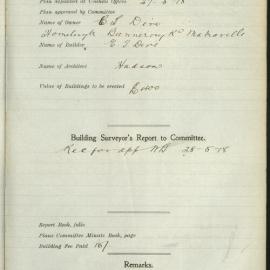 Plan deposited at Council Offices 27-5-18
Plan approved by Committee
Name of Owner E J Dive
Homeleigh Bannerong Rd Matraville
Name of Builder E J Dive
Name of Architect Hudson
Value of Buildings to be erected £400
Building Surveyor's Report to Committee.
Rec for app WB 28-5-18
Report Book, folio
Plans Committee Minute Book, page
Building Fee Paid 16/
Remarks.